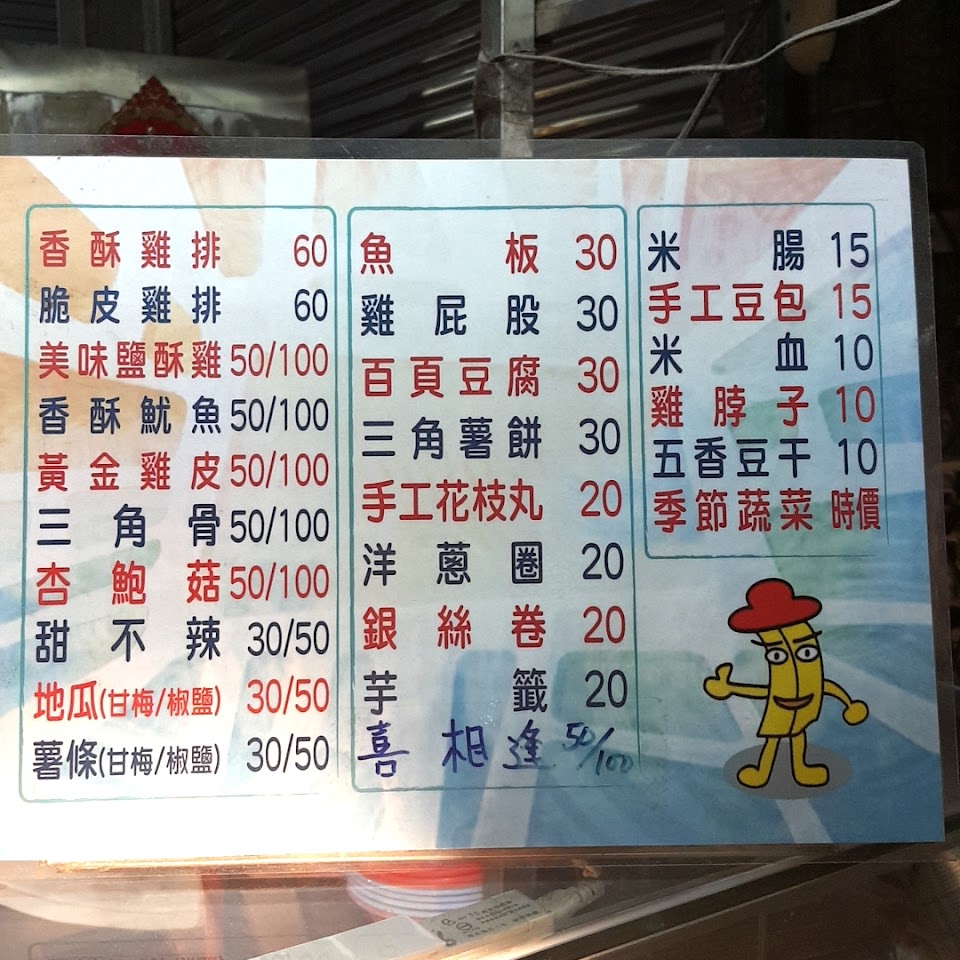 香酥雞排 60
脆皮雞排 60
美味鹽酥雞 50/100
香酥魷魚 50/100
黃金雞皮 50/100
三角骨 50/100
杏鮑菇 50/100
甜不辣 30/50
地瓜(甘梅/椒鹽) 30/50
薯條(甘梅/椒鹽) 30/50
魚板 30
雞屁股 30
百頁豆腐 30
三角薯餅 30
手工花枝丸 20
洋蔥圈 20
銀絲卷 20
芋籤 20
喜相逢 50/100
米腸 15
手工豆包 15
米血 10
雞脖子 10
五香豆干 10
季節蔬菜 時價